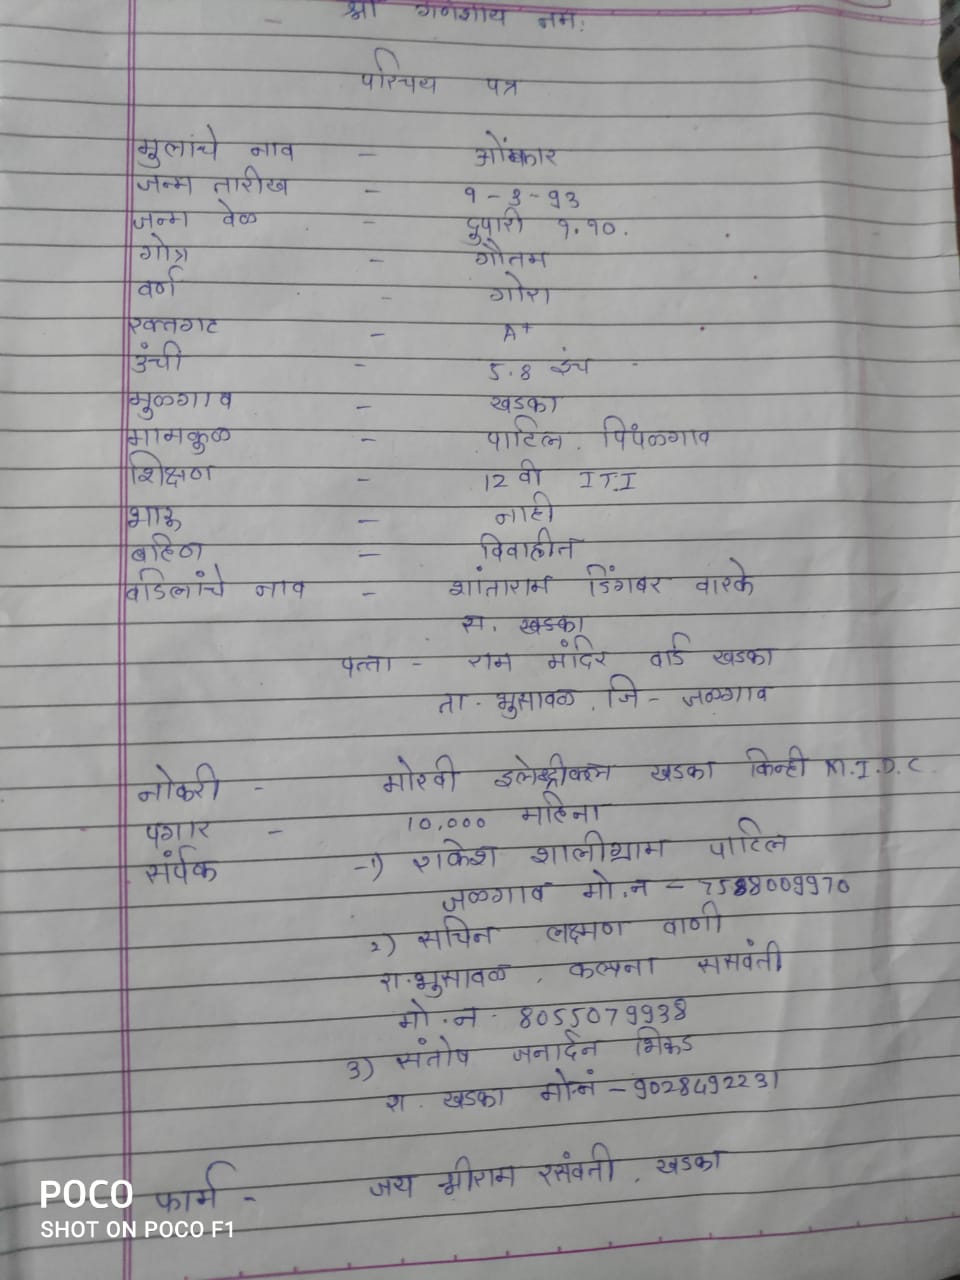 श्री गणेशाय नमः
परिचय पत्र
मुलांचे नाव - ओंकार
जन्म तारीख - १-३-९३
जन्म वेळ - दुपारी १.१०.
गोत्र - गौतम
वर्ण - गोरा
रक्तगट - A+
उंची - ५.४ इंच
मुळगाव - खडका
मामकुळ - पाटिल. पिंपळगाव
शिक्षण - 12 वी I T.I
भाऊ - नाही
बहिण - विवाहीत
वडिलांचे नाव - शांताराम डिंगबर वारके
रा. खडका
पत्ता - राम मंदिर वार्ड खडका
ता. भुसावळ. जि - जळगाव
नोकरी - मोरवी इलेक्ट्रीकल खडका किन्ही M.I.D.C
पगार - 10,000 महिना
संर्पक -1) राकेश शालीग्राम पाटिल
जळगाव मो.न - 7588009970
2) सचिन लक्ष्मण वाणी
रा.भुसावळ. कल्पना रसवंती
मो.न - 8055079938
3) संतोष जनार्दन भिकड
रा. खडका मो.नं - 9028492231
फार्म - जय श्रीराम रसंवती. खडका
POCO
SHOT ON POCO F1